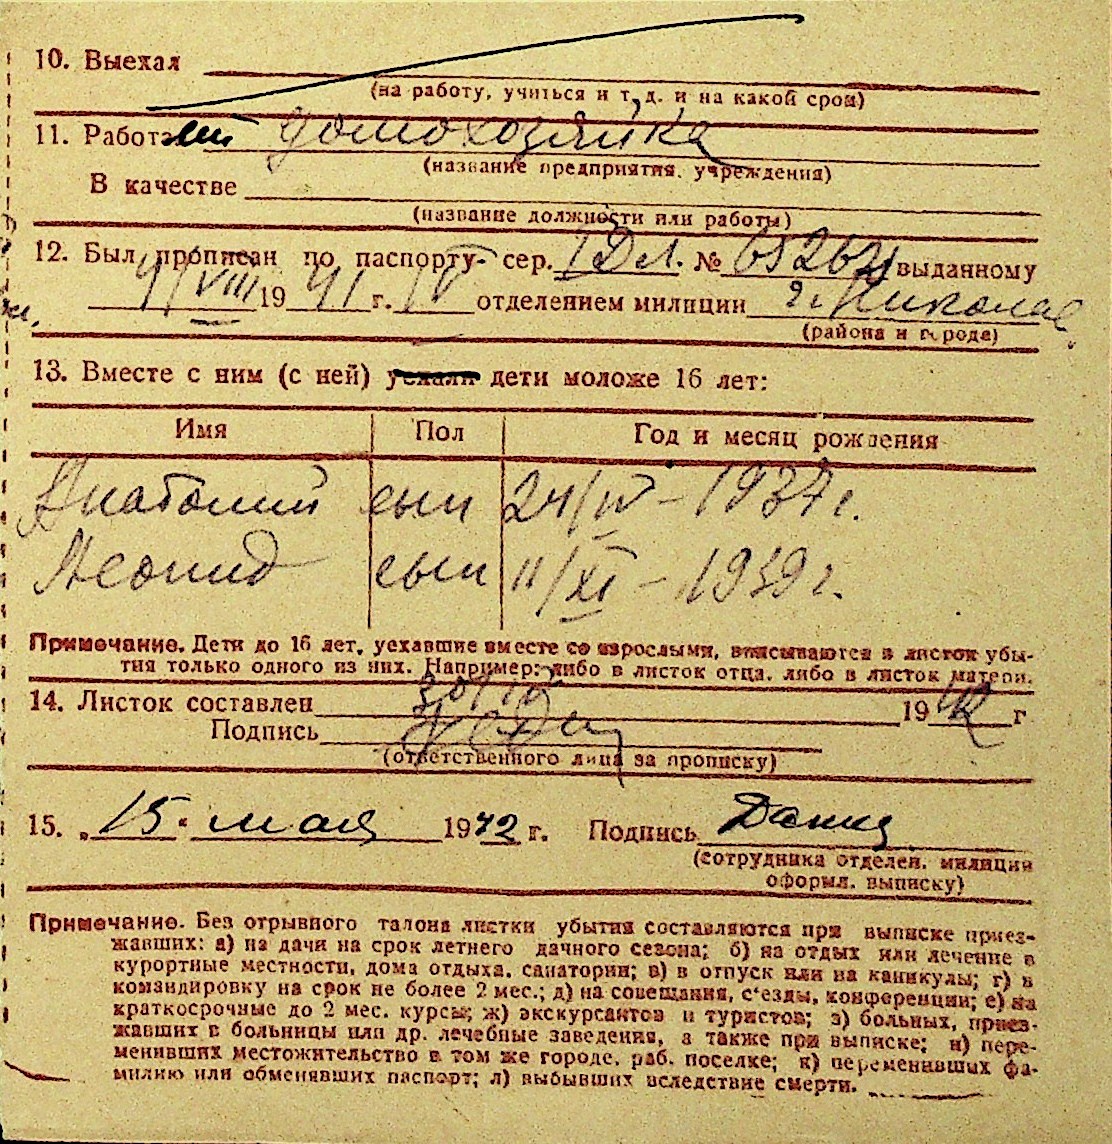 10. Выехал
(на работу, учиться и т, д. и на какой срок)
11. Работает домохозяйка
(название предприятия, учреждения)
В качестве
(название должности или работы)
12. Был прописан по паспорту- сер. № выданному
4/VIII 1941 г. IV отделением милиции г. Николае
(района и города)
13. Вместе с ним (с ней) уехали дети моложе 16 лет:
Имя Пол Год и месяц рождения
Анатолий сын 24/IV – 1937 г.
Леонид сын 11/XI – 1939 г.
Примечание. Дети до 16 лет, уехавшие вместе со взрослыми, вписываются в листок убы-
тия только одного из них. Например: либо в листок отца, либо в листок матери.
14. Листок составлен 30/IV 1942 г
Подпись
(ответственного лица за прописку)
15. „15" мая 1942 г. Подпись
(сотрудника отделен. милиции
оформл. выписку)
Примечание. Без отрывного талона листки убытия составляются при выписке приез-
жавших: а) на дачи на срок летнего дачного сезона; б) на отдых или лечение в
курортные местности, дома отдыха, санатории; в) в отпуск или на каникулы; г) в
командировку на срок не более 2 мес.; д) на совещания, с'езды, конференции; е) на
краткосрочные до 2 мес. курсы; ж) экскурсантов и туристов; з) больных, приез-
жавших в больницы или др. лечебные заведения, а также при выписке; и) пере-
менивших местожительство в том же городе, раб. поселке; к) переменивших фа-
милию или обменявших паспорт; л) выбывших вследствие смерти.